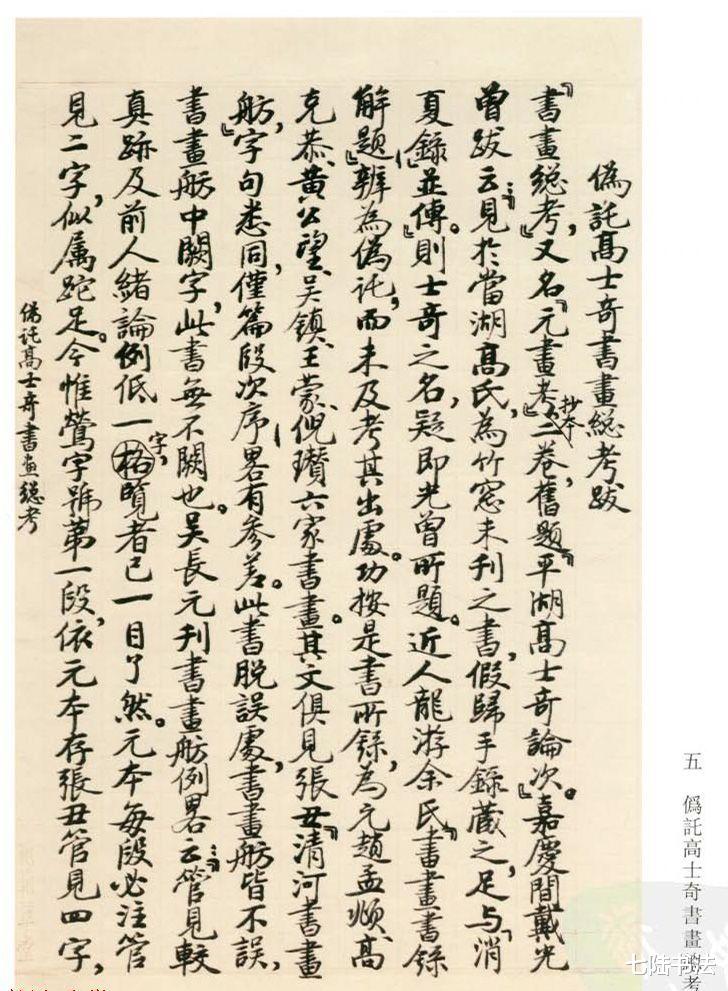 偽託髙士奇書畫緫考跋
『書畫緫考』，又名『元畫考』抄本二卷，舊題『平湖髙士奇論次』。嘉慶間戴光
曾跋云：「見於當湖髙氏，為竹窓未刋之書，假歸手錄藏之，足与『消
夏錄』並傳。」則士奇之名，疑即光曾所題。近人龍游余氏『書畫書錄
解題』辨為偽託，而未及考其出處。功按是書所錄，為元趙孟頫、髙
克恭、黃公望、吴鎮、王蒙、倪瓚六家書畫。其文俱見張丑『清河書畫
舫』，字句悉同，僅篇段次序畧有參差。此書脫誤處，書畫舫皆不誤，
書畫舫中闕字，此書無不闕也。吴長元刋書畫舫例畧云：「管見較
真跡及前人緒論例低一格字，覽者已一目了然。元本每段必注管
見二字，似属蛇足。今惟鶯字號第一段，依元本存張丑管見四字，
偽託髙士奇書畫緫考
五 僞託高士奇書畫總考
七陆书法